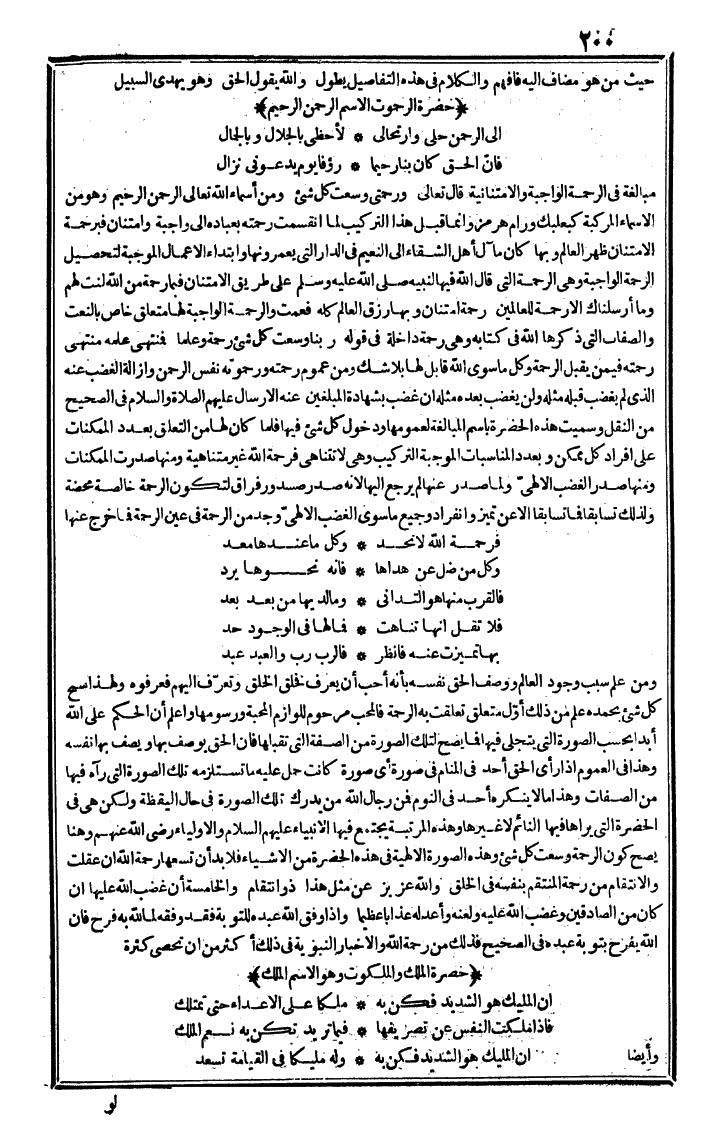 ٢٠٠
حيث من هو مضاف اليه فافهم والكلام فى هذه التفاصيل يطول والله يقول الحق وهو يهدى السبيل
﴿حضرة الرحموت الاسم الرحمن الرحيم﴾
الى الرحمن حلى وارتحالى * لأحظى بالجلال وبالجمال
فانّ الحق كان بنا رحيما * رؤفا يوم يدعونى نزال
مبالغة فى الرحمة الواجبة والامتنانية قال تعالى ورحمتى وسعت كل شئ ومن أسماء الله تعالى الرحمن الرحيم وهو من
الاسماء المركبة كبعلبك ورام هرمز وانما قبل هذا التركيب لما انقسمت رحمته بعباده الى واجبة وامتنان فبرحمة
الامتنان ظهر العالم وبها كان مآل أهل الشقاء الى النعيم فى الدار التى يعمرونها وابتداء الاعمال الموجبة لتحصيل
الرحمة الواجبة وهى الرحمة التى قال الله فيها لنبيه صلى الله عليه وسلم على طريق الامتنان فبما رحمة من الله لنت لهم
وما أرسلناك الا رحمة للعالمين رحمة امتنان وبها رزق العالم كله فعمت والرحمة الواجبة لها متعلق خاص بالنعت
والصفات التى ذكرها الله فى كتابه وهى رحمة داخلة فى قوله ربنا وسعت كل شئ رحمة وعلما فنتهى علمه منتهى
رحمته فيمن يقبل الرحمة وكل ماسوى الله قابل لها بلا شك ومن عموم رحمته ورحموته نفس الرحمن وازالة الغضب عنه
الذى لم يغضب قبله مثله ولن يغضب بعده مثله ان غضب بشهادة المبلغين عنه الارسال عليهم الصلاة والسلام فى الصحيح
من النقل وسميت هذه الحضرة باسم المبالغة لعمومها ودخول كل شئ فيها فلما كان لها من التعلق بعدد الممكنات
على افراد كل ممكن وبعدد المناسبات الموجبة التركيب وهى لا تتناهى فرحمة الله غير متناهية ومنها صدرت الممكنات
ومنها صدر الغضب الالهىّ ولما صدر عنها لم يرجع اليها لانه صدر صدور فراق لتكون الرحمة خالصة محضة
ولذلك تسابقا فما تسابقا الا عن تميز وانفراد وجميع ماسوى الغضب الالهىّ وجد من الرحمة فى عين الرحمة فما خرج عنها
فرحمة الله لا تحد * وكل ما عندها معد
وكل من ضل عن هداها * فانه نحوها يرد
فالقرب منها هو التدانى * ومالديها من بعد بعد
فلا تقل انها تناهت * فما لها فى الوجود حد
بها تميزت عنه فانظر * فالرب رب والعبد عبد
ومن علم سبب وجود العالم ووصف الحق نفسه بأنه أحب أن يعرف فخلق الخلق وتعرّف اليهم فعرفوه ولهذا سبح
كل شئ بحمده علم من ذلك أوّل متعلق تعلقت به الرحمة فالمحب مرحوم للوازم المحبة ورسومها واعلم أن الحكم على الله
أبدا بحسب الصورة التى يتجلى فيها فما يصح لتلك الصورة من الصفة التى تقبلها فان الحق يوصف بها ويصف بها نفسه
وهذا فى العموم اذا رأى الحق أحد فى المنام فى صورة أى صورة كانت حمل عليه ما تستلزمه تلك الصورة التى رآه فيها
من الصفات وهذا ما لا ينكره أحد فى النوم فمن رجال الله من يدرك تلك الصورة فى حال اليقظة ولكن هى فى
الحضرة التى يراها فيها النائم لا غيرها وهذه المرتبة يجتمع فيها الانبياء عليهم السلام والاولياء رضى الله عنهم وهنا
يصح كون الرحمة وسعت كل شئ وهذه الصورة الالهية فى هذه الحضرة من الاشياء فلا بد أن تسعها رحمة الله ان عقلت
والانتقام من رحمة المنتقم بنفسه فى الخلق والله عزيز عن مثل هذا ذوانتقام والخامسة أن غضب الله عليها ان
كان من الصادقين وغضب الله عليه ولعنه وأعدله عذابا عظيما واذا وفق الله عبده للتوبة فقد وفقه لما لله به فرح فان
الله يفرح بتوبة عبده فى الصحيح فذلك من رحمة الله والاخبار النبوّية فى ذلك أكثر من ان تحصى كثرة
﴿حضرة الملك والملكوت وهو الاسم الملك﴾
ان المليك هو الشديد فكن به * ملكا على الاعداء حتى تمتلك
فاذا ملكت النفس عن تصريفها * فيما تريد تكن به نعم الملك
وأيضا ان المليك هو الشديد فكن به * وله مليكا فى القيامة تسعد
لو